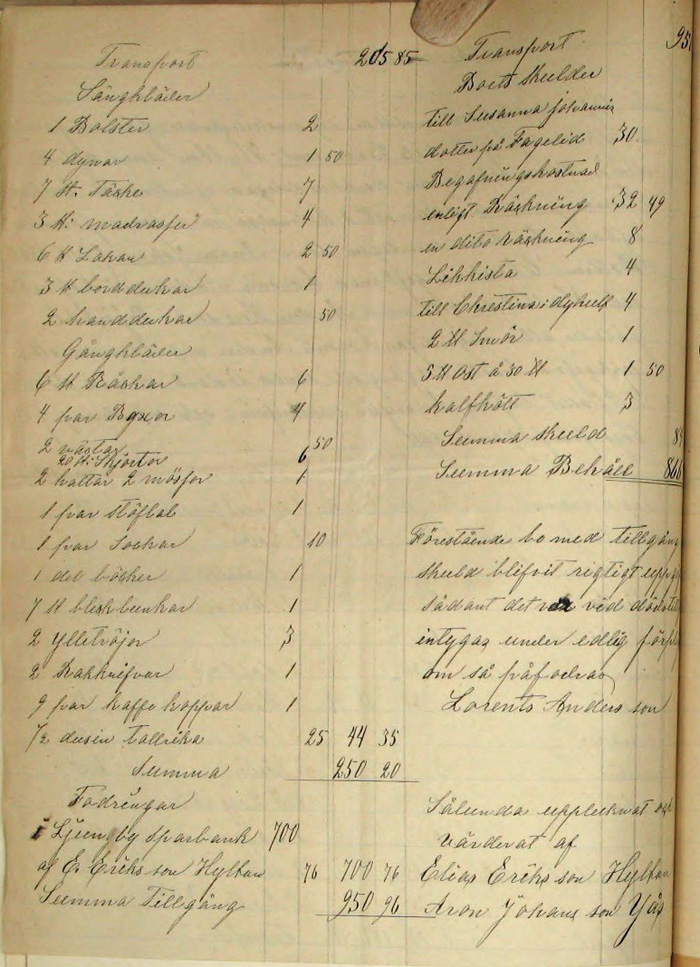 Transport 205 85
Sängkläder
1 Bolster 2
4 dynor 1 50
7 st. Täcke 7
3 st: madrasser 4
6 st Lakan 2 50
3 st bordduckar 1
2 handdukar 50
Gångkläder
6 st Råckar 6
4 par Byxor 4
2 västar 50
20 st: Skjortor 6
2 hattar 2 mössor 1
1 par stöflal 1
1 par Sockar 10
1 del böcker 1
7 st bleckbunkar 1
2 Ylletröjor 3
2 Rakknifvar 1
9 par kaffe koppar 1
1/2 dusin tallrika 25 44 35
Summa 250 20
Fodringar
i Ljungby sparbank 700
af E. Eriksson Hyltan 76 700 76
Summa Tillgång 950 96
Transport 95
Boets skulder
till Susanna johannis
dotter på Fagelid 30
Begrafningskostnad
enligt Räkning 32 49
en dito räkning 8
Likkista 4
till Christina i 4
2 ℔ Smör 1
5 ℔ Ost á 30 ℔ 1 50
kalfkött 3
Summa skuld 84
Summa Behåll 866
Förestående bo med tillgång
skuld blifvit rigtigt
sådant det var vid
intygas under edlig
om så påfodras
Lorents Andersson
Sålunda upptecknat och
värderat af
Elias Eriksson Hyltan
Aron Johansson